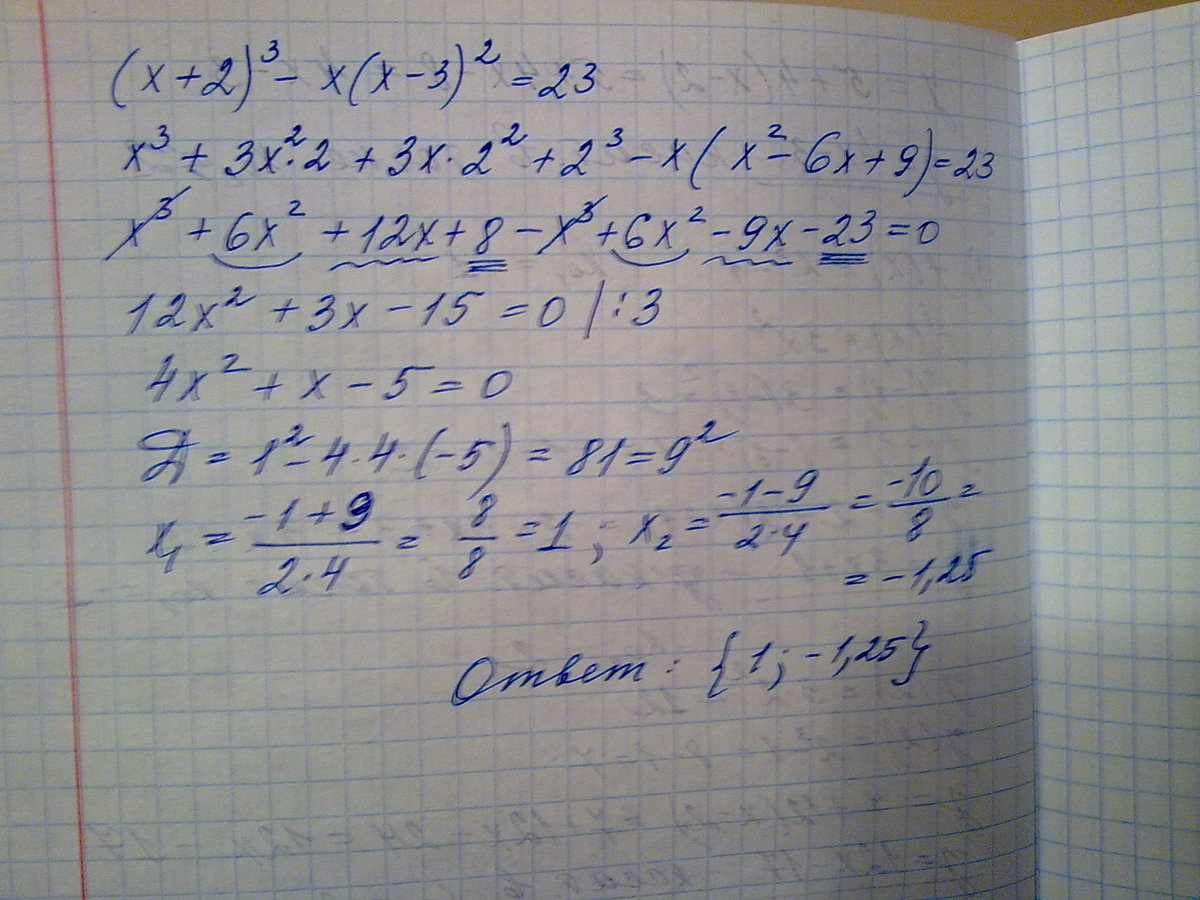 (x+2)³ - x(x-3)² = 23
x³ + 3x²·2 + 3x·2² + 2³ - x(x² - 6x + 9) = 23
x³ + 6x² + 12x + 8 - x³ + 6x² - 9x - 23 = 0
12x² + 3x - 15 = 0 | :3
4x² + x - 5 = 0
Д = 1² - 4·4·(-5) = 81 = 9²
x₁ = (-1+9)/(2·4) = 8/8 = 1 ; x₂ = (-1-9)/(2·4) = -10/8 =
= -1,25
Ответ: {1; -1,25}